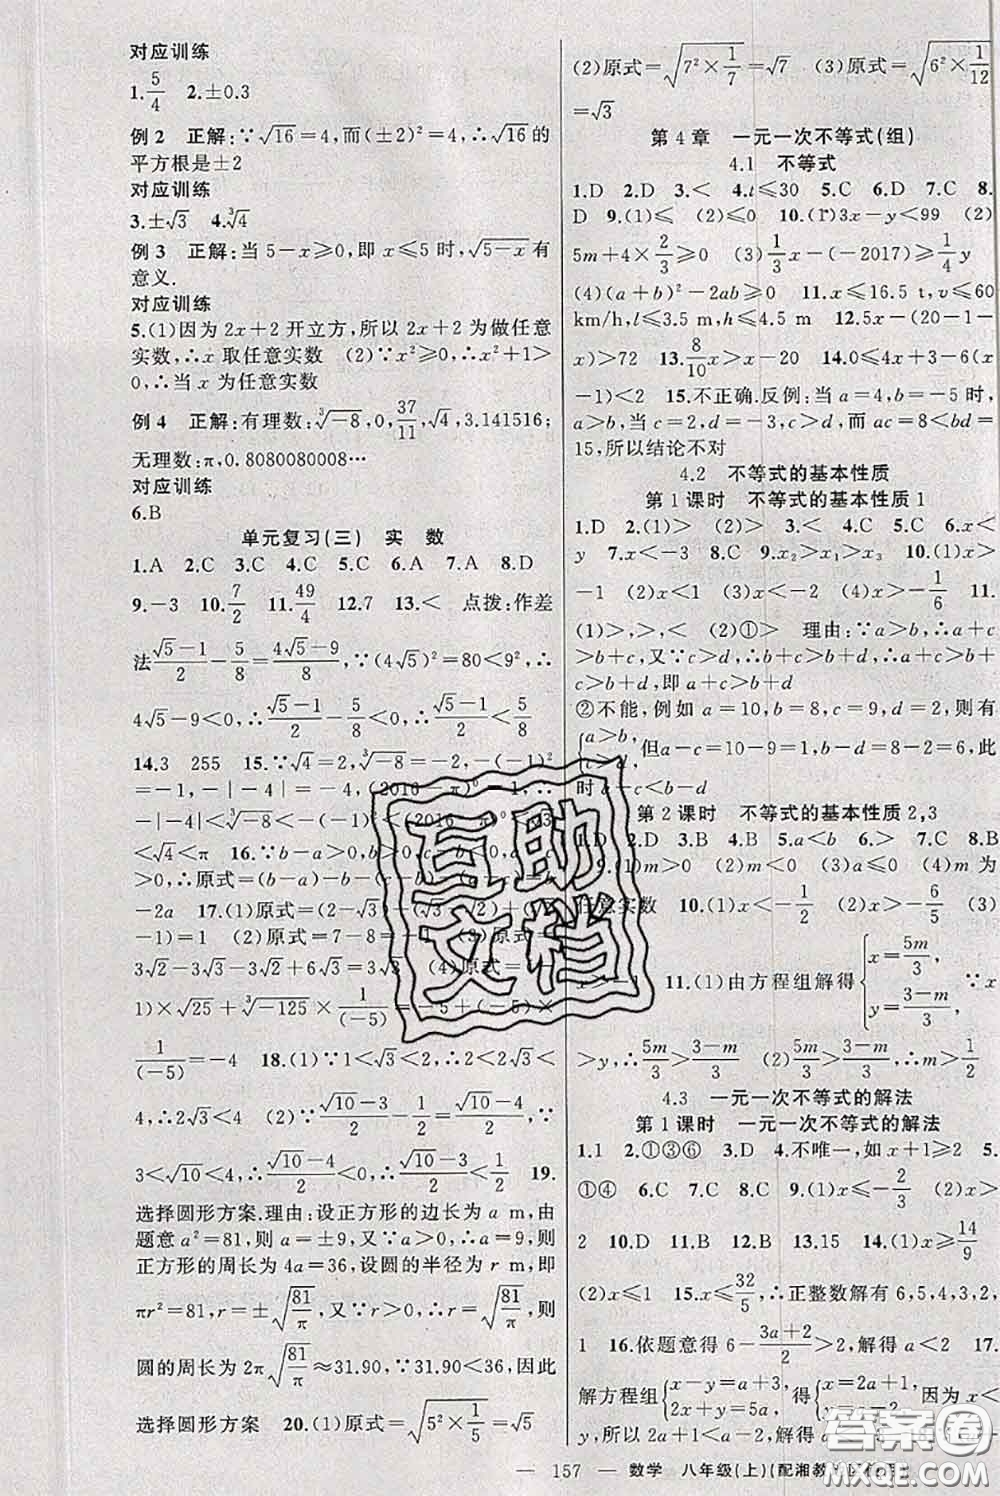 对应训练
1.5/4 2.±0.3
例2 正解:∵√16=4,而(±2)²=4,∴√16的
平方根是±2
对应训练
3.±√3 4.³√4
例3 正解:当5-x≥0,即x≤5时,√(5-x)有
意义.
对应训练
5.(1)因为2x+2开立方,所以2x+2为做任意
实数,∴x取任意实数 (2)∵x²≥0,∴x²+1>
0,∴当x为任意实数
例4 正解:有理数:³√-8,0,37/11,√4,3.141516;
无理数:π,0.8080080008…
对应训练
6.B
单元复习(三) 实 数
1.A 2.C 3.C 4.C 5.C 6.A 7.A 8.D
9.-3 10.7/2 11.49/4 12.7 13.< 点拨:作差
法(√5-1)/2-5/8=(4√5-9)/8,∵(4√5)²=80<9²,∴
4√5-9<0,∴(√5-1)/2-5/8<0,∴(√5-1)/2<5/8
14.3 255 15.∵√4=2,³√-8=-2,-(-1)²
=-1,-|-4|=-4,(2016-π)⁰=1,∵
-|-4|<³√-8<-(-1)²<(2016-π)⁰<√3
<√4<π 16.∵b-a>0,b
>0,∴原式=(b-a)-(b-
-2a 17.(1)原式=(2-√3)
-1)=1 (2)原式=7-8=-1 (3)原式=
3√2-3√3-√2-√3+6√3=2√2+3√3 (4)原式=(-
1)×√25+³√-125×1/(-5)=-5+(-5)×
1/(-5)=-4 18.(1)∵1<√3<2,∴2<2√3<
4,∴2√3<4 (2)∵(√10-3)/2-1/2=(√10-4)/2,∵
3<√10<4,∴(√10-4)/2<0,∴(√10-3)/2<1/2 19.
选择圆形方案.理由:设正方形的边长为a m,由
题意a²=81,则a=±9,又∵a>0,∴a=9,则
正方形的周长为4a=36,设圆的半径为r m,即
πr²=81,r=±√(81/π),又∵r>0,∴r=√(81/π),则
圆的周长为2π√(81/π)≈31.90,∵31.90<36,因此
选择圆形方案 20.(1)原式=√(5²×1/5)=√5
(2)原式=√(7²×1/7)=√7 (3)原式=√(6²×1/12)
=√3
第4章 一元一次不等式(组)
4.1 不等式
1.D 2.D 3.< 4.t≤30 5.C 6.D 7.C 8.
D 9.(1)≤ (2)≤0 10.(1)3x-y<99 (2)
5m+4×2/3≥0 (3)1/3x-(-2017)≥1/4y
(4)(a+b)²-2ab≥0 11.x≤16.5 t,v≤60
km/h,l≤3.5 m,h≤4.5 m 12.5x-(20-1-
x)>72 13.8/10x>x-6 14.0≤4x+3-6(x
-1)<2 15.不正确.反例:当a=4,b=-5时,
a>b,当c=2,d=-3时,c>d,而ac=8<bd=
15,所以结论不对
4.2 不等式的基本性质
第1课时 不等式的基本性质1
1.D 2.(1)> (2)> 3.< 4.C 5.C 6.x<
y 7.< 8.C 9.x₂>x₁>x₃ 10.(1)x>
-1 (2)x>1 (3)x<2 (4)x>-1/6 11.
(1)>,>,< (2)①> 理由:∵a>b,∴a+c
>b+c,又∵c>d,∴b+c>b+d,∴a+c>b+c
>b+d,即a+c>b+d
②不能,例如a=10,b=8,c=9,d=2,则有
{a>b, c>d, 但a-c=10-9=1,b-d=8-2=6,此
时a-c<b-d
第2课时 不等式的基本性质2,3
1.D 2.D 3.B 4.B 5.a<b 6.> 7.C 8.B
9.(1)m>0 (2)m<0 (3)a≤0 (4)m为
任意实数 10.(1)x<-1/2 (2)x>-6/5 (3)
x>-1 11.(1)由方程组解得{x=5m/3, y=(3-m)/3, ∵x
>y,∴5m/3>(3-m)/3 (2)5m/3>(3-m)/3,∴m>1/2
4.3 一元一次不等式的解法
第1课时 一元一次不等式的解法
1.1 2.①③⑥ 3.D 4.不唯一,如x+1≥2 5.
①④ 6.C 7.C 8.C 9.(1)x≤-2/3 (2)x>
2 10.D 11.B 12.A 13.15 14.(1)x≥14/9
(2)x≤1 15.x≤32/5,∴正整数解有6,5,4,3,2,
1 16.依题意得6-(3a+2)/2>2,解得a<2 17.
解方程组{x-y=a+3, 2x+y=5a, 得{x=2a+1, 因为x<
— 157 — 数学 八年级(上)(配湘教
互助
文档
答案圈